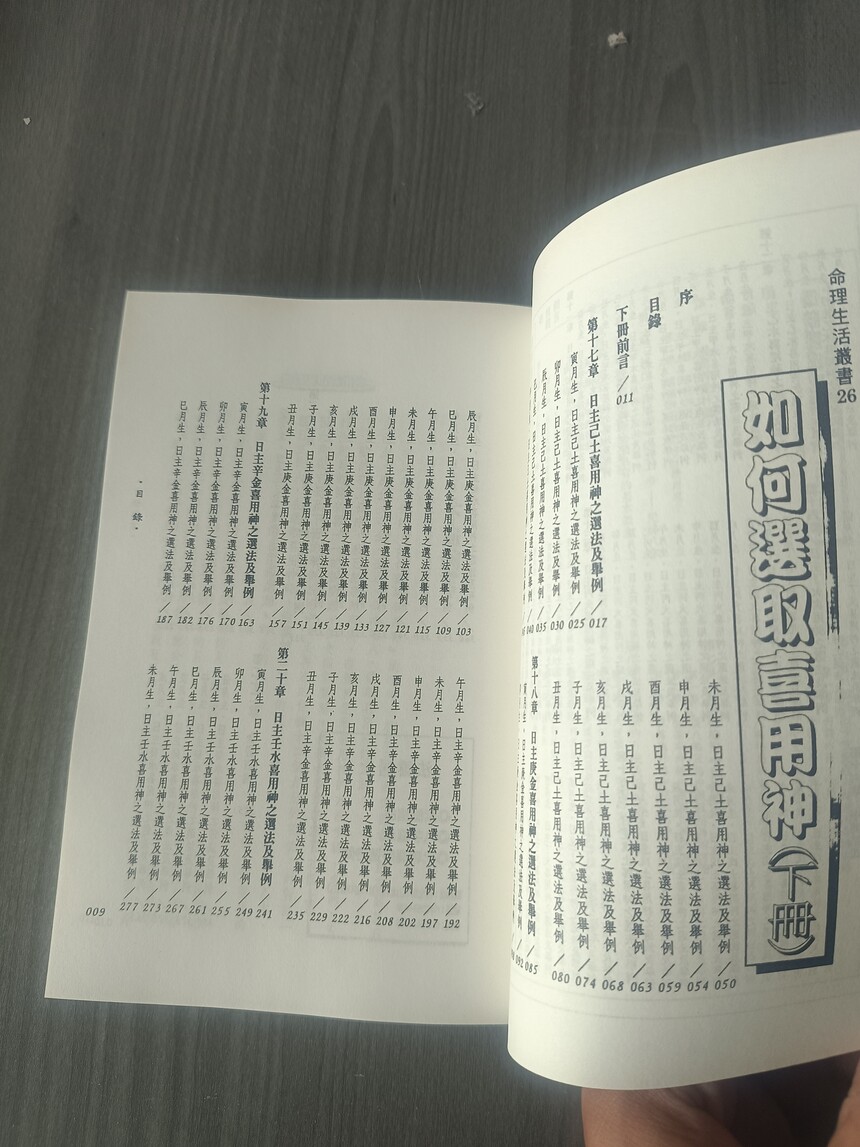 命理生活叢書26
如何選取喜用神(下冊)
序
目錄
下冊前言／011
第十七章 日主己土喜用神之選法及舉例／017
寅月生，日主己土喜用神之選法及舉例／025
卯月生，日主己土喜用神之選法及舉例／030
辰月生，日主己土喜用神之選法及舉例／035
巳月生，日主己土喜用神之選法及舉例／040
未月生，日主己土喜用神之選法及舉例／050
申月生，日主己土喜用神之選法及舉例／054
酉月生，日主己土喜用神之選法及舉例／059
戌月生，日主己土喜用神之選法及舉例／063
亥月生，日主己土喜用神之選法及舉例／068
子月生，日主己土喜用神之選法及舉例／074
丑月生，日主己土喜用神之選法及舉例／080
第十八章 日主庚金喜用神之選法及舉例／085
寅月生，日主庚金喜用神之選法及舉例／092
辰月生，日主庚金喜用神之選法及舉例／103
巳月生，日主庚金喜用神之選法及舉例／109
午月生，日主庚金喜用神之選法及舉例／115
未月生，日主庚金喜用神之選法及舉例／121
申月生，日主庚金喜用神之選法及舉例／127
酉月生，日主庚金喜用神之選法及舉例／133
戌月生，日主庚金喜用神之選法及舉例／139
亥月生，日主庚金喜用神之選法及舉例／145
子月生，日主庚金喜用神之選法及舉例／151
丑月生，日主庚金喜用神之選法及舉例／157
第十九章 日主辛金喜用神之選法及舉例／163
寅月生，日主辛金喜用神之選法及舉例／170
卯月生，日主辛金喜用神之選法及舉例／176
辰月生，日主辛金喜用神之選法及舉例／182
巳月生，日主辛金喜用神之選法及舉例／187
午月生，日主辛金喜用神之選法及舉例／192
未月生，日主辛金喜用神之選法及舉例／197
申月生，日主辛金喜用神之選法及舉例／202
酉月生，日主辛金喜用神之選法及舉例／208
戌月生，日主辛金喜用神之選法及舉例／216
亥月生，日主辛金喜用神之選法及舉例／222
子月生，日主辛金喜用神之選法及舉例／229
丑月生，日主辛金喜用神之選法及舉例／235
第二十章 日主壬水喜用神之選法及舉例／241
寅月生，日主壬水喜用神之選法及舉例／249
卯月生，日主壬水喜用神之選法及舉例／255
辰月生，日主壬水喜用神之選法及舉例／261
巳月生，日主壬水喜用神之選法及舉例／267
午月生，日主壬水喜用神之選法及舉例／273
未月生，日主壬水喜用神之選法及舉例／277
·目錄·
009